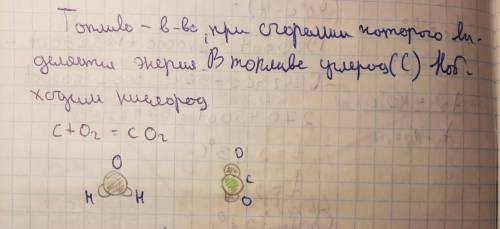 Топливо - в-во, при сгорании которого вы-
деляется энергия. В топливе углерод (С) Необ-
ходим кислород
C + O₂ = CO₂
O
O
C
H H
O